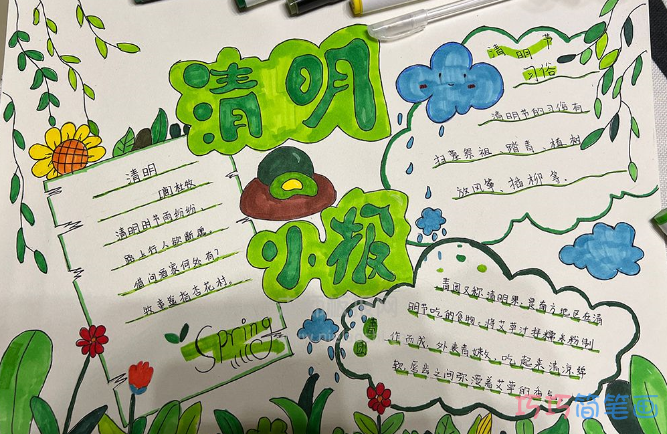 清明
小报
清明
[唐]杜牧
清明时节雨纷纷，
路上行人欲断魂。
借问酒家何处有？
牧童遥指杏花村。
Spring
清明节
习俗
清明节的习俗有
扫墓祭祖、踏青、植树
放风筝、插柳等。
青团
青团又称清明果，是南方地区在清
明节吃的食物，将艾草汁拌糯米粉制
作而成，外表青嫩，吃起来清凉甜
软，唇齿之间弥漫着艾草的香气
巧巧简笔画